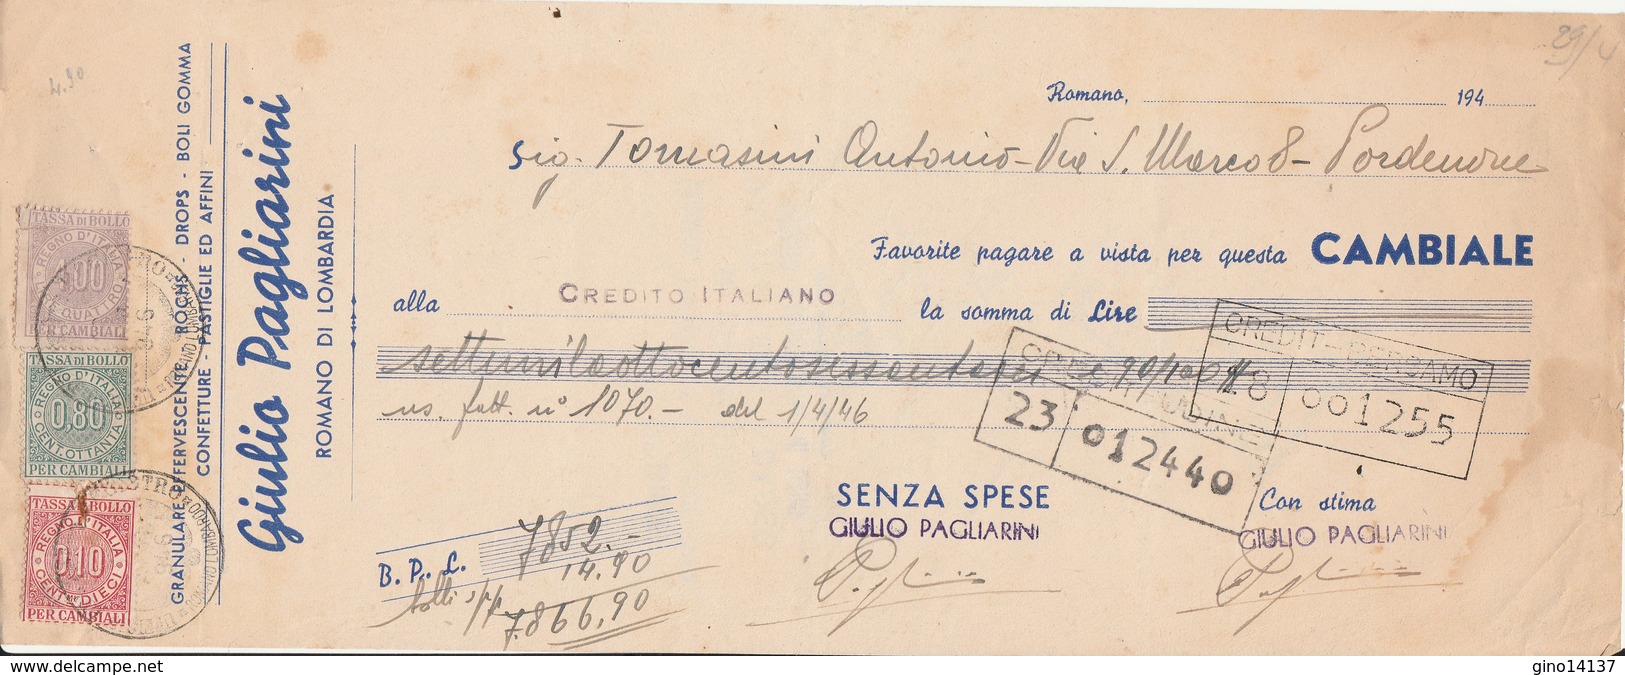 29/4
4.90
Romano, 194
Sig. Tomasini Antonio - Via S. Marco 8 - Pordenone
Favorite pagare a vista per questa CAMBIALE
alla CREDITO ITALIANO la somma di Lire
settemilaottocentosessantasei e 90/100
ns. fatt. n° 1070.- del 1/4/46
CREDIT BERGAMO
18 001255
UDINE
23 012440
SENZA SPESE
GIULIO PAGLIARINI
Con stima
GIULIO PAGLIARINI
B. P. L. 7852.-
bolli 14.90
7.866,90
GRANULARE EFFERVESCENTE - ROCHS - DROPS - BOLI GOMMA
CONFETTURE - PASTIGLIE ED AFFINI
Giulio Pagliarini
ROMANO DI LOMBARDIA
TASSA DI BOLLO
REGNO D'ITALIA
QUATTRO
PER CAMBIALI
TASSA DI BOLLO
REGNO D'ITALIA
0,80
CENT. OTTANTA
PER CAMBIALI
TASSA DI BOLLO
REGNO D'ITALIA
0,10
CENT. DIECI
PER CAMBIALI
www.delcampe.net
gino14137